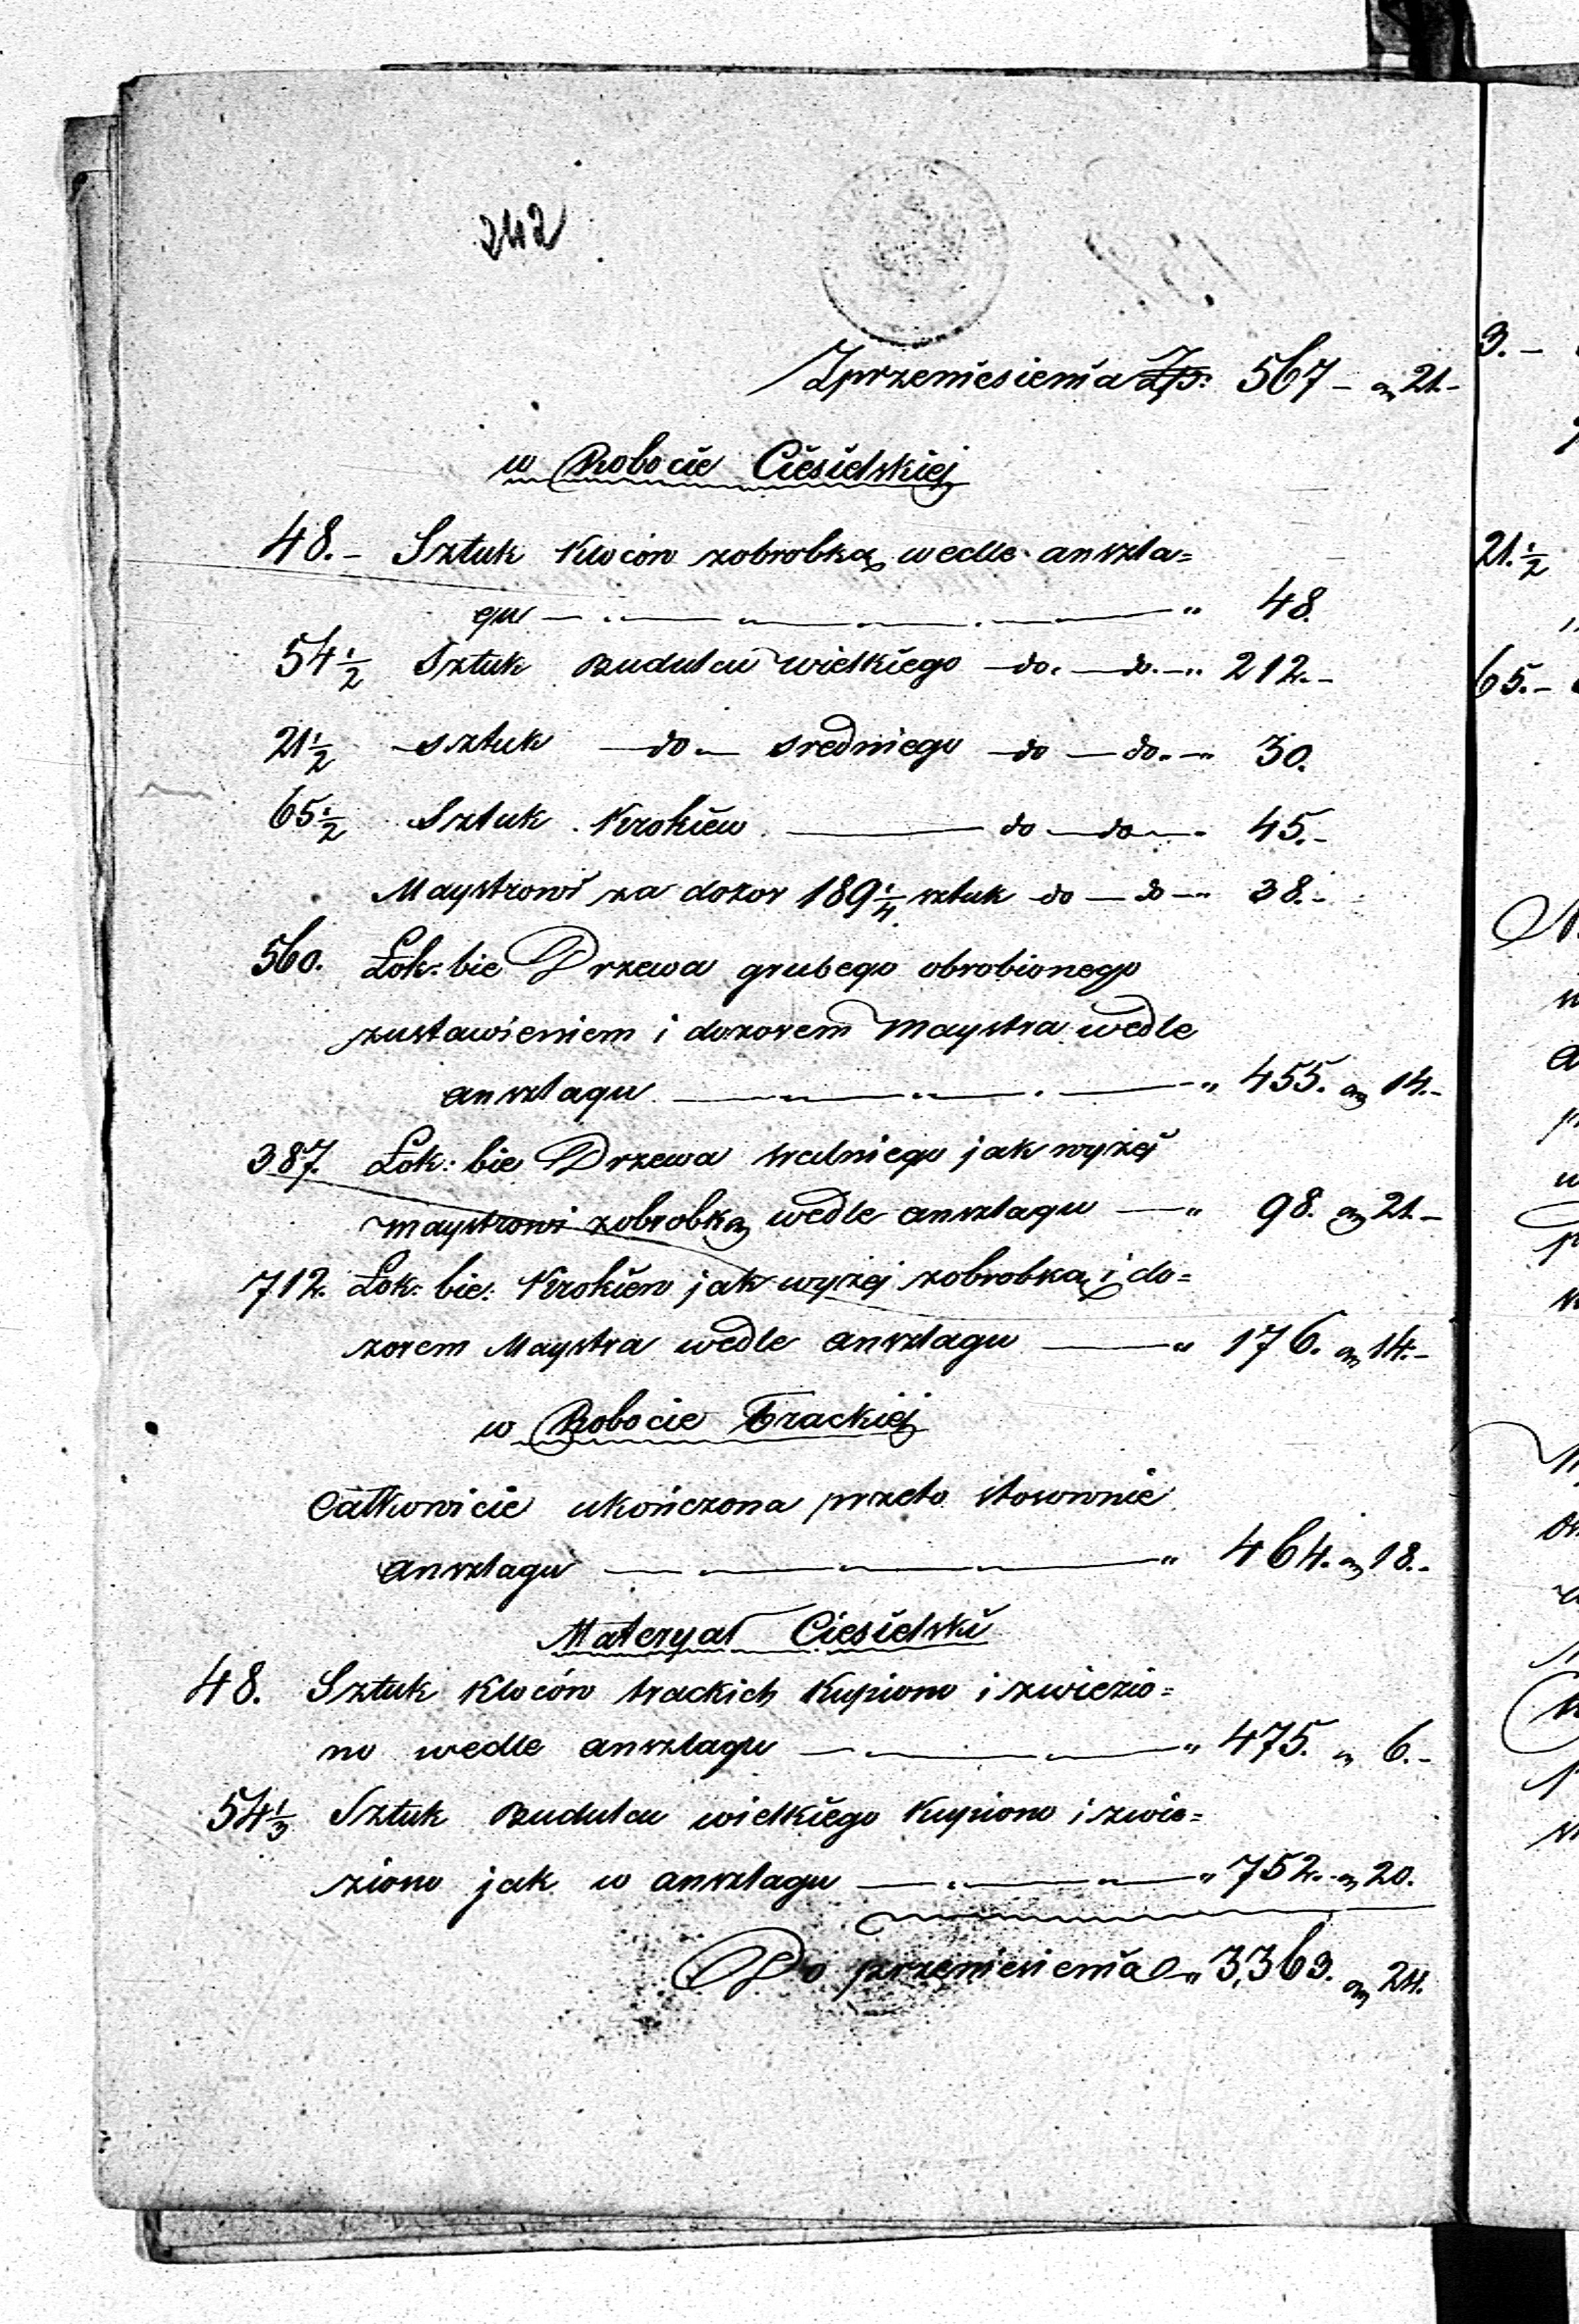 242
Zprzeniesienia Zp: 567 – „ 21.–
w Robocie Ciesielskiej
48.– Sztuk Kloców zobrobką wedle anszla=
gu – „ 48.
54 1/2 Sztuk Budulcu wielkiego –do. –do.–„ 212.–
21 1/2 sztuk –do– sredniego –do –do.–„ 30.
65 1/2 Sztuk Krokiew –do –do–„ 45.–
Maystrowi za dozor 189 1/4 sztuk do – do –„ 38.–
560. Łok: bie Drzewa grubego obrobionego
zustawieniem i dozorem Maystra wedle
anszlagu – „ 455. „ 14.–
387. Łok: bie Drzewa sredniego jak wyżej
maystrowi zobrobką wedle anszlagu – „ 98. „ 21.–
712. Łok: bie: Krokiew jak wyżej zobrobką i do=
zorem Maystra wedle anszlagu – „ 176. „ 14.–
w Robocie Trackiej
Całkowicie ukończona przeto stosownie
anszlagu – „ 464. „ 18.–
Materyał Ciesielski
48. Sztuk Kloców trackich Kupiono i zwiezio=
no wedle anszlagu – „ 475. „ 6.–
54 1/3 Sztuk Budulcu wielkiego Kupiono i zwie=
ziono jak w anszlagu – „ 752. „ 20.
Do przeniesienia – „ 3,363. „ 24.
3.–
21. 1/2
65.–